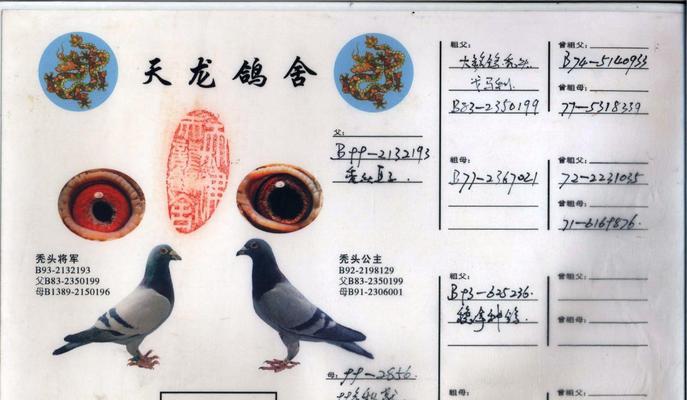 天龙鸽舍
秃头将军
B93-2132193
父B83-2350199
母B1389-2150196
秃头公主
B92-2198129
父B83-2350199
母B91-2306001
父:
B99-2132193
母: 99-2856
祖父:
B83-2350199
祖母:
B77-2367021
祖父:
B93-625236
祖母:
曾祖父:
B74-5140933
曾祖母:
77-5318339
曾祖父:
72-2231035
曾祖母:
71-6169876.
曾祖父:
曾祖母:
曾祖父: